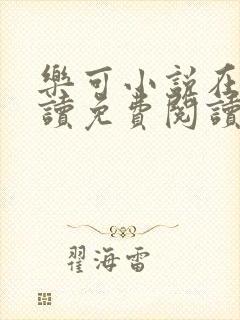 樂可小說在
讀免費閱讀
翟海雷